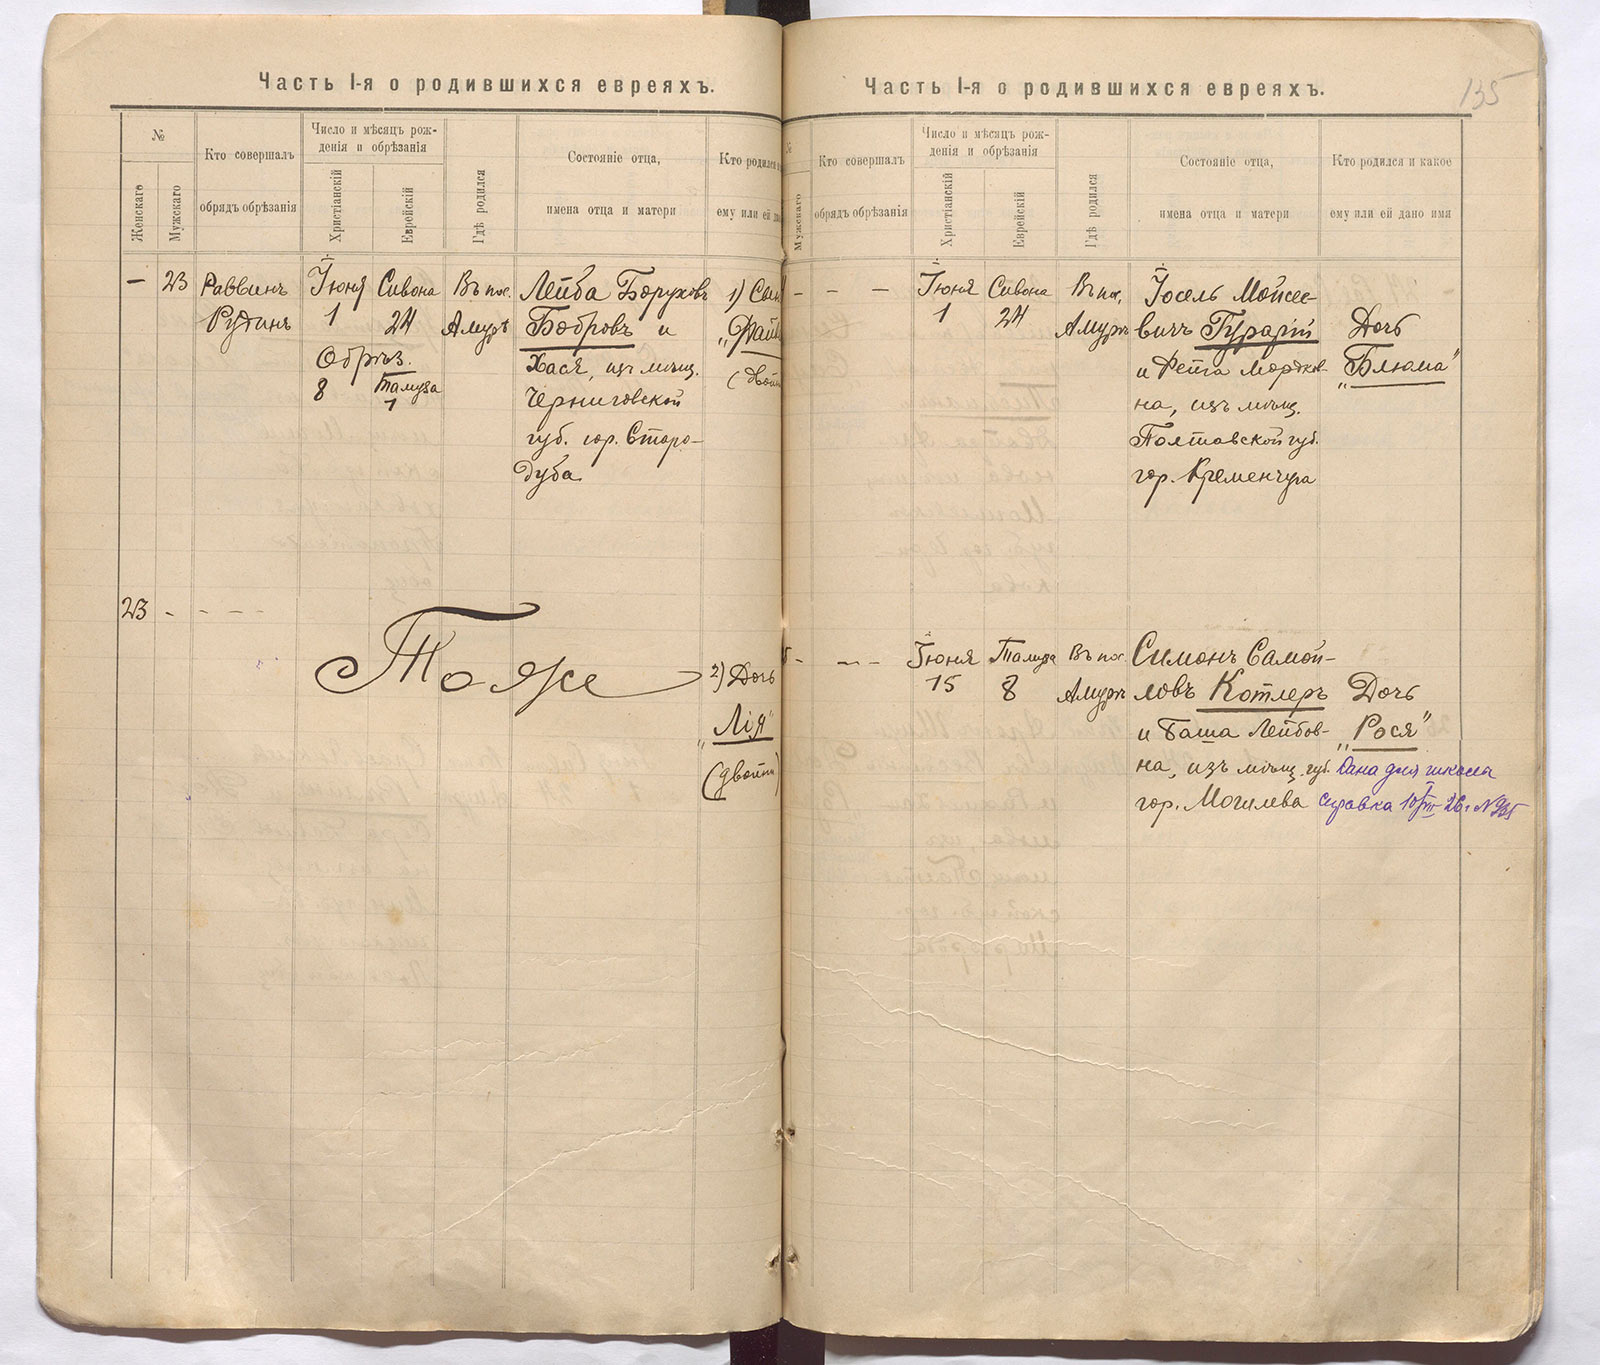 Часть I-я о родившихся евреяхъ.
№
Женскаго
Мужскаго
Кто совершалъ
обрядъ обрѣзанія
Число и мѣсяцъ рож-
денія и обрѣзанія
Христіанскій
Еврейскій
Гдѣ родился
Состояніе отца,
имена отца и матери
Кто родился
ему или ей
— 23 Раввинъ Іюня Сивона Въ пос. Лейба Боруховъ 1) Сынъ
Рудинъ 1 24 Амуръ Бобровъ и
Обрѣз. Хася, изъ мѣщ.
8 Тамуза Черниговской
1
губ. гор. Старо-
дуба
23 - - - -
Тоже 2) Дочь
"Лія"
(двойни)
Часть I-я о родившихся евреяхъ.
135
№
Мужскаго
Кто совершалъ
обрядъ обрѣзанія
Число и мѣсяцъ рож-
денія и обрѣзанія
Христіанскій
Еврейскій
Гдѣ родился
Состояніе отца,
имена отца и матери
Кто родился и какое
ему или ей дано имя
- - - Іюня Сивона Въ пос. Іосель Мойсее-
1 24 Амуръ вичъ Гурарій Дочь
и Рейза Мордков- "Блюма"
на, изъ мѣщ.
Полтавской губ.
гор. Кременчуга
- - - Іюня Тамуза Въ пос. Симонъ Самой-
15 8 Амуръ ловъ Котлеръ Дочь
и Баша Лейбов- "Рося"
на, изъ мѣщ. губ. Дана для школы
гор. Могилева справка